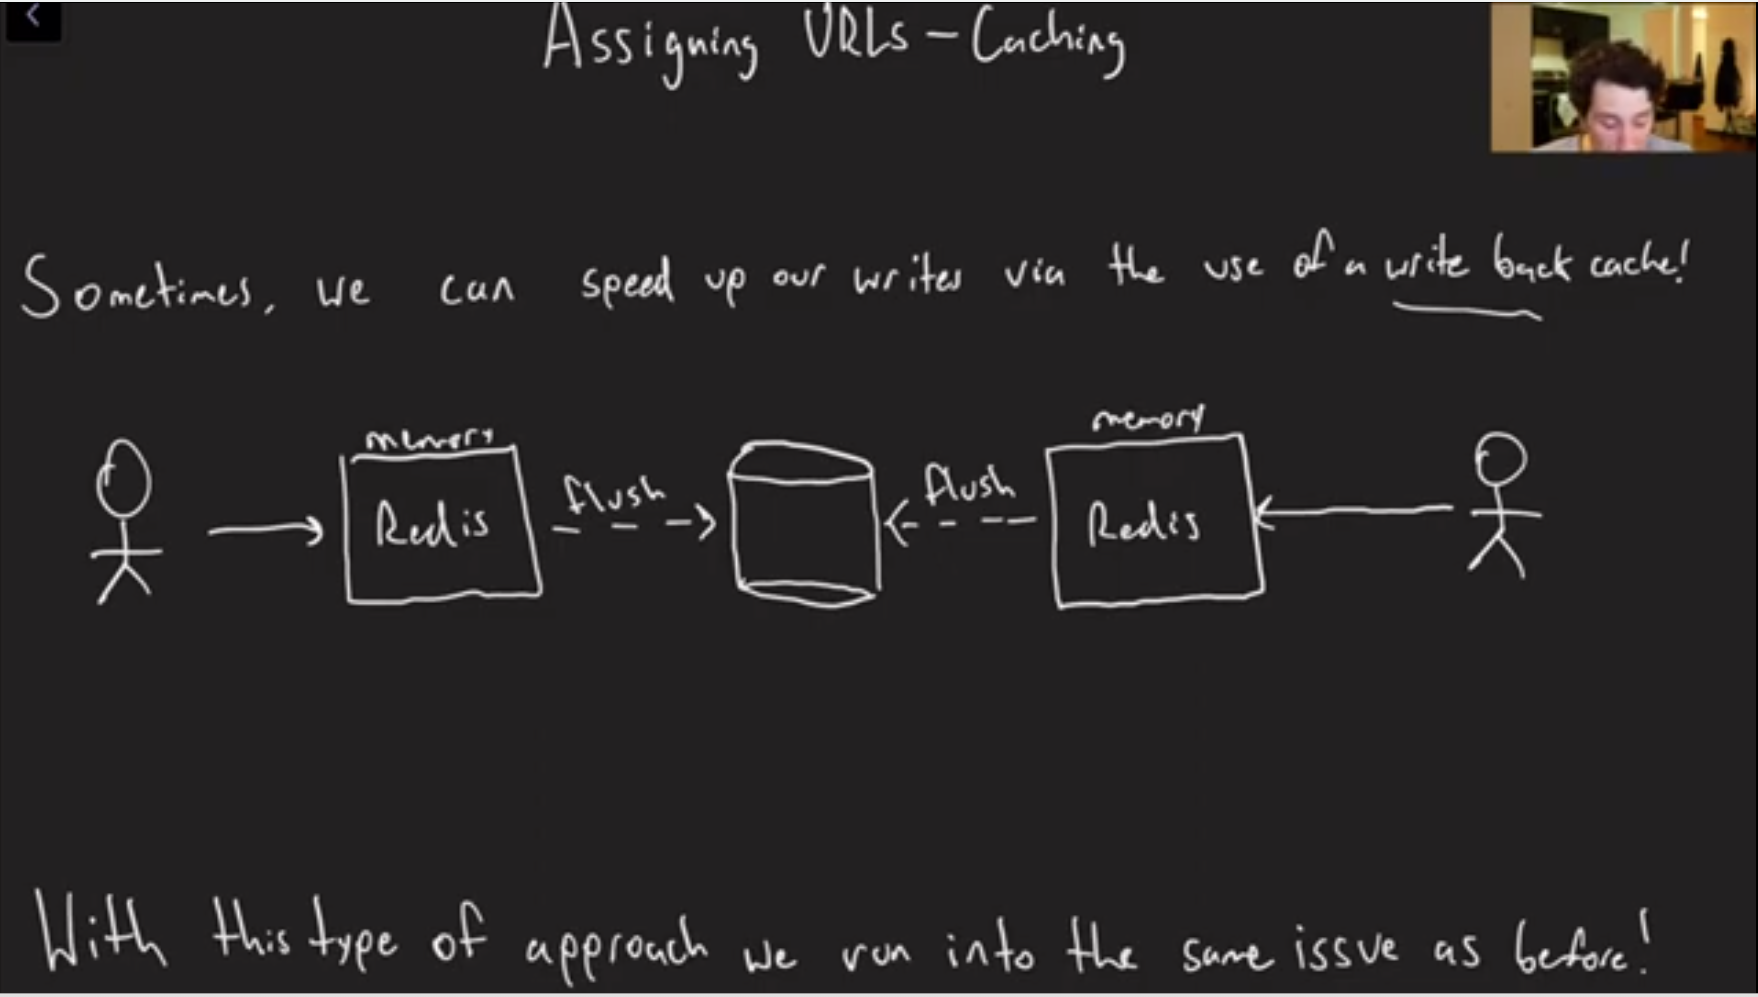 Assigning URLs - Caching
Sometimes, we can speed up our writes via the use of a write back cache!
memory
memory
Redis
flush
flush
Redis
With this type of approach we run into the same issue as before!